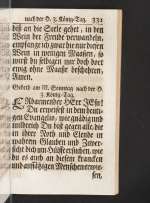 nach der H. 3. König-Tag. 331
biß an die Seele gehet, in den
Wein der Freude verwandeln,
empfange ich zwar hie nur diesen
Wein in wenigen Maassen, so
wirst du selbigen mir doch dort
ewig ohne Maasse bescheren,
Amen.
Gebeth am III. Sonntag nach der H.
3. König-Tag.
ERbarmender HErr JEsu!
Du erweisest in dem heuti-
gen Evangelio, wie gnädig und
mildreich Du bist gegen alle, die
in ihrer Noth und Elende in
wahrem Glauben und Zuver-
sicht dich um Hülffe ersuchen, wie
du es auch an diesen krancken
und aussätzigen Menschen erwie-
sen,